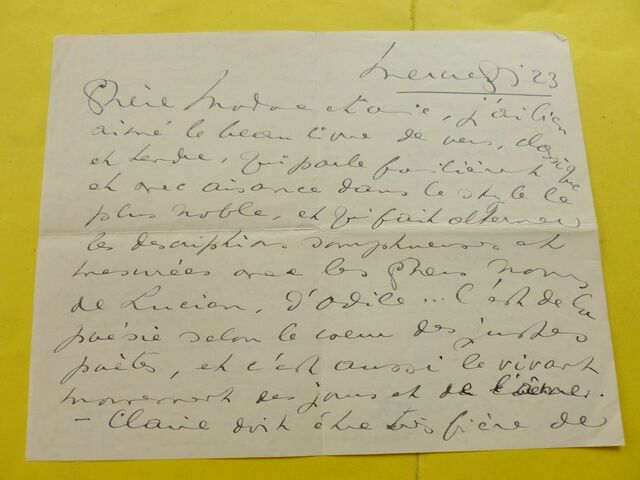 mercredi 23
Chère Madame et amie, j'ai bien
aimé le beau livre de vers, classique
et tendre, qui parle familièrement
et avec aisance dans le style le
plus noble, et qui fait alterner
les descriptions somptueuses et
mesurées avec les chers noms
de Lucien, d'Odile... C'est de la
poésie selon le coeur des justes
poètes, et c'est aussi le vivant
mouvement des jours et de l'âme.
- Claire doit être très fière de